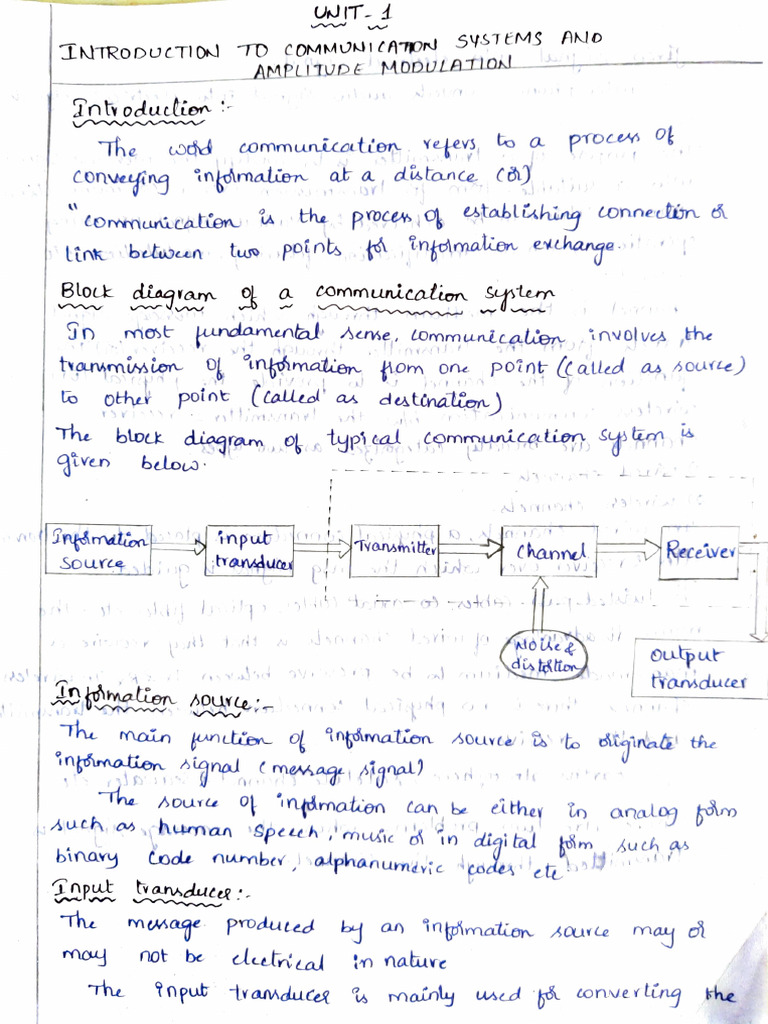 UNIT-1
INTRODUCTION TO COMMUNICATION SYSTEMS AND
AMPLITUDE MODULATION
Introduction :-
The word communication refers to a process of
conveying information at a distance (or)
"communication is the process of establishing connection or
link between two points for information exchange.
Block diagram of a communication system
In most fundamental sense, communication involves the
transmission of information from one point (called as source)
to other point (called as destination)
The block diagram of typical communication system is
given below.
Information source
input transducer
Transmitter
Channel
Receiver
Noise & distortion
output transducer
Information source :-
The main function of information source is to originate the
information signal (message signal)
The source of information can be either in analog form
such as human speech, music or in digital form such as
binary code number, alphanumeric codes etc
Input transducer :-
The message produced by an information source may or
may not be electrical in nature
The input transducer is mainly used for converting the